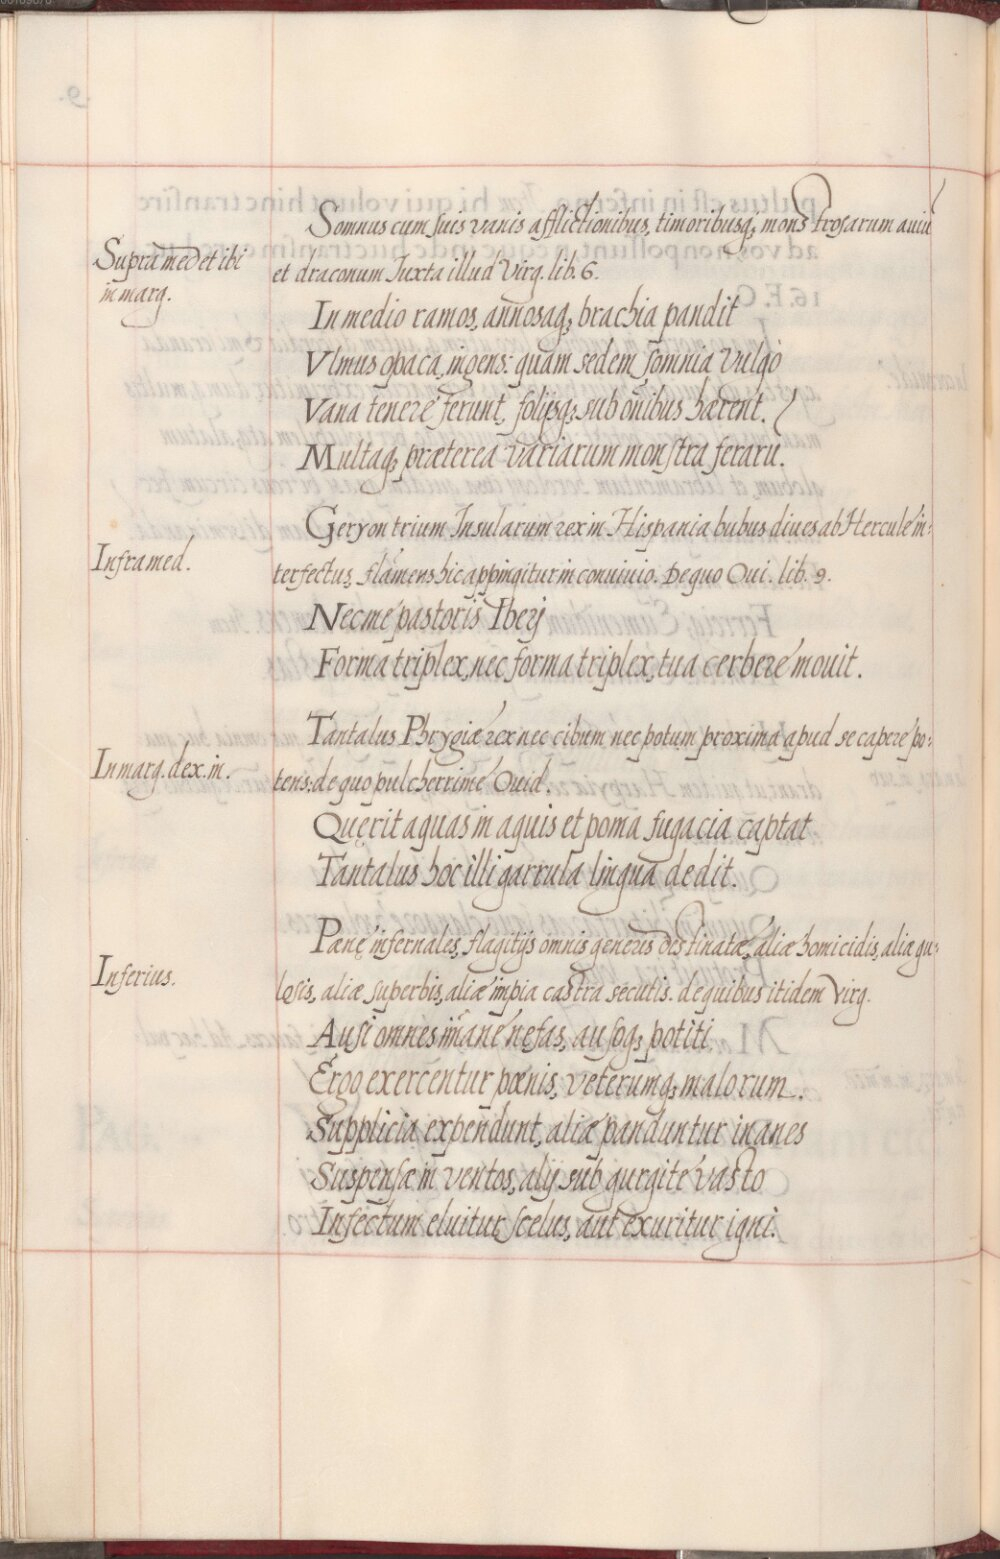 Somnus cum suis vanis afflictionibus, timoribusq; monstrosarum auiū
Supra med et ibi
in marg.
et draconum Iuxta illud Virg. lib. 6.
In medio ramos, annosaq; brachia pandit
Vlmus opaca, ingens: quam sedem somnia vulgò
Vana tenere ferunt, folijsq; sub oñibus hærent.
Multaq; præterea variarum monstra ferarū.
Geryon trium Insularum rex in Hispania bubus diues ab Hercule in-
Infra med.
terfectus, flamens hic appingitur in conuiuio. De quo Oui. lib. 9.
Nec me pastoris Iberj
Forma triplex, nec forma triplex, tua cerbere mouit.
Tantalus Phrygiæ rex nec cibum nec potum proxima apud se capere po-
In marg. dex. in.
tens: de quo pulcherrime Ouid.
Quęrit aquas in aquis et poma fugacia captat
Tantalus hoc illi garrula lingua dedit.
Pænę infernales, flagitijs omnis generis destinatæ, aliæ homicidis, aliæ gu-
Inferius.
losis, aliæ superbis, aliæ impia castra secutis. de quibus itidem Virg.
Ausi omnes im̄ane nefas, ausoq; potiti.
Ergo exercentur pœnis, veterumq; malorum.
Supplicia expendunt, aliæ panduntur inanes
Suspensæ in ventos, alij sub gurgite vasto
Infectum eluitur scelus, aut exuritur igni.